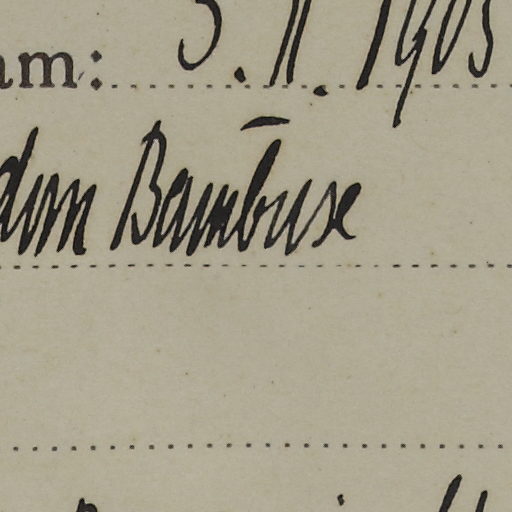 am: 3. II. 1905
dum Bambuse